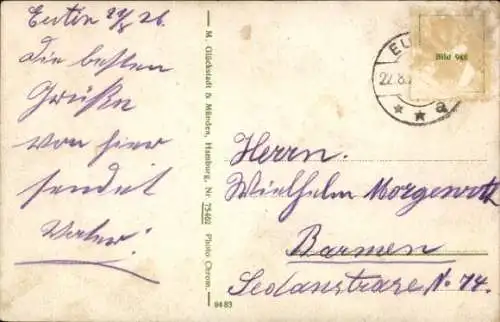 Eutin 21/8 26.
Die besten
Grüße
von hier
sendet
Vater!
M. Glückstadt & Münden, Hamburg, Nr. 75460 Photo Chrom.
9483
EU
22.8.
* * a
Bild
Herrn.
Wielhelm Morgenroth
Barmen
Sedanstrare No. 74.